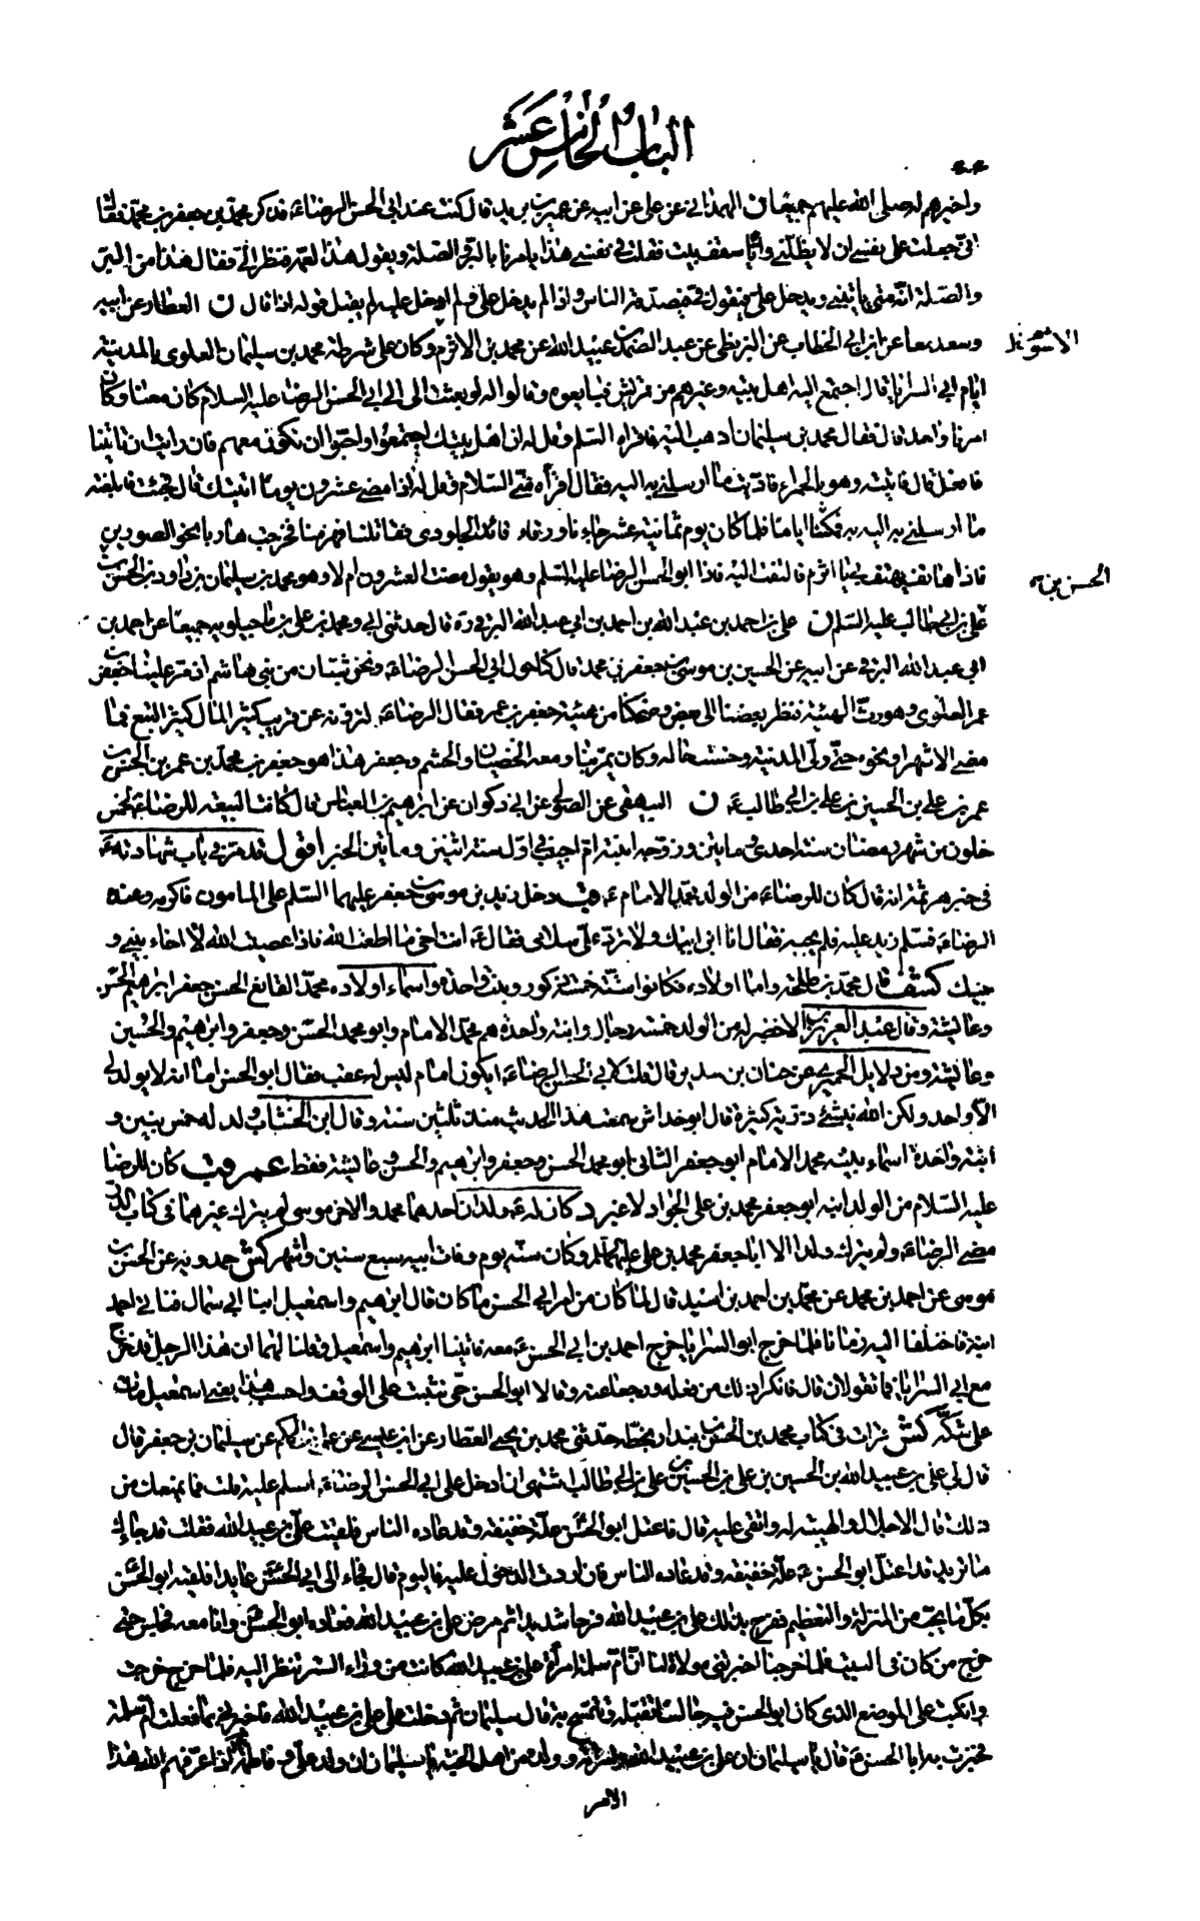 الباب الخامس عشر
واخبرهم له صلى الله عليهم جميعا ن الهمداني عن علي عن ابيه عن عمير بن بريد قال كنت عند ابي الحسن الرضاء فذكر محمد بن جعفر بن محمد فقال
اني جعلت على نفسي ان لا يظلني واياه سقف بيت فقلت في نفسي هذا يامرنا بالبر والصلة ويقول هذا لعمه فنظر الي فقال هذا من البر
والصلة انه متى ياتيني ويدخل علي فيقول في فيصدقه الناس واذا لم يدخل علي ولم ادخل عليه لم يقبل قوله اذا قال ن العطار عن ابيه
وسعد معا عن ابن ابي الخطاب عن البزنطي عن عبد الصمد بن عبيد الله عن محمد بن الاثرم وكان على شرطة محمد بن سليمان العلوي بالمدينة
ايام ابي السرايا قال اجتمع اليه اهل بيته وغيرهم من قريش فبايعوه وقالوا له لو بعثت الى ابي الحسن الرضا عليه السلام كان معنا وكان
امرنا واحدا قال فقال محمد بن سليمان اذهب اليه فاقراه السلم وقل له ان اهل بيتك اجتمعوا واحبوا ان تكون معهم فان رايت ان تاتينا
فافعل قال فاتيته وهو بالحمراء فاديت ما ارسلني به اليه فقال اقرأه مني السلام وقل له اذا مضى عشرون يوما اتيتك قال فجئت فابلغته
ما ارسلني به اليه فمكثنا اياما فلما كان يوم ثمانية عشر جاءنا ورقاء قائد الجلودي فقاتلنا فهزمنا فخرجت هاربا نحو الصورين
فاذا هاتف يهتف بي يا اثرم فالتفت اليه فاذا ابو الحسن الرضا عليه السلم وهو يقول مضت العشرون ام لا وهو محمد بن سليمان بن داود بن الحسن بن
علي بن ابي طالب عليه السلم ن علي بن احمد بن عبد الله بن احمد بن ابي عبد الله البرقي ره قال حدثني ابي ومحمد بن علي بن ماجيلويه جميعا عن احمد بن
ابي عبد الله البرقي عن ابيه عن الحسين بن موسى بن جعفر بن محمد قال كنا حول ابي الحسن الرضاء ونحن شبان من بني هاشم اذ مر علينا جعفر بن
عمر العلوي وهو رث الهيئة فنظر بعضنا الى بعض وضحكنا من هيئة جعفر بن عمر فقال الرضاء لترونه عن قريب كثير المال كثير التبع فما
مضى الا شهر او نحوه حتى ولي المدينة وحسنت حاله وكان يمر بنا ومعه الخصيان والحشم وجعفر هذا هو جعفر بن محمد بن عمر بن الحسن بن
عمر بن علي بن الحسين بن علي بن ابي طالب ن البيهقي عن الصولي عن ابي ذكوان عن ابراهيم بن العباس قال كانت البيعة للرضاء لخمس
خلون من شهر رمضان سنة احدى ومايتين وزوجه ابنته ام حبيب في اول سنة اثنتين ومايتين الخبر اقول قد مر في باب شهادته
في خبر هرثمة انه قال كان للرضاء من الولد محمد الامام دخل زيد بن موسى بن جعفر عليهما السلم على المامون فاكرمه وعنده
الرضاء فسلم زيد عليه فلم يجبه فقال انا ابن ابيك ولا ترد علي سلامي فقال انت اخي ما اطعت الله فاذا عصيت الله لا اخاء بيني و
بينك كشف قال محمد بن طلحة واما اولاده فكانوا ستة خمسة ذكور وبنت واحدة واسماء اولاده محمد القانع الحسن جعفر ابراهيم الحسين
وعايشة وقال عبد العزيز بن الاخضر له من الولد خمسة رجال وابنة واحدة هم محمد الامام وابو محمد الحسن وجعفر وابراهيم والحسين
وعايشة ومن دلايل الحميري عن حنان بن سدير قال قلت لابي الحسن الرضاء ايكون امام ليس له عقب فقال ابو الحسن اما انه لا يولد لي
الا واحد ولكن الله ينشئ ذرية كثيرة قال ابو خداش سمعت هذا الحديث منذ ثلثين سنة وقال ابن الخشاب ولد له خمس بنين و
ابنة واحدة اسماء بنيه محمد الامام ابو جعفر الثاني ابو محمد الحسن وجعفر وابراهيم والحسن وعايشة فقط كان للرضا
عليه السلام من الولد ابنه ابو جعفر محمد بن علي الجواد لا غير د كان له ولدان احدهما محمد والاخر موسى لم يترك غيرهما في كتاب الدر
مضى الرضاء ولم يترك ولدا الا ابا جعفر محمد بن علي وكان سنه يوم وفات ابيه سبع سنين واشهر كش حمدويه عن الحسن بن
موسى عن احمد بن محمد عن محمد بن احمد بن اسيد قال لما كان من امر ابي الحسن ما كان قال ابراهيم واسمعيل ابنا ابي سمال فناتي احمد
ابنه فاختلفا اليه زمانا فلما خرج ابو السرايا خرج احمد بن ابي الحسن معه فاتينا ابراهيم واسمعيل وقلنا لهما ان هذا الرجل قد خرج
مع ابي السرايا فما تقولان قال فانكرا ذلك من فعله ورجعا عنه وقالا ابو الحسن حي نثبت على الوقف واحسب هذا يعني اسمعيل مات
على شكه كش قرات في كتاب محمد بن الحسن بن بندار بخطه حدثني محمد بن يحيى العطار عن ابن عيسى عن علي بن الحكم عن سليمان بن جعفر قال
قال لي علي بن عبيد الله بن الحسين بن علي بن الحسين بن علي بن ابي طالب اشتهي ان ادخل على ابي الحسن الرضاء اسلم عليه قلت فما يمنعك من
ذلك قال الاجلال والهيبة له واتقي عليه قال فاعتل ابو الحسن علة خفيفة وقد عاده الناس فلقيت علي بن عبيد الله فقلت قد جاءك
ما تريد قد اعتل ابو الحسن علة خفيفة وقد عاده الناس فان اردت الدخول عليه فاليوم قال فجاء الى ابي الحسن عايدا فلقيه ابو الحسن
بكل ما يحب من المنزلة والتعظيم ففرح بذلك علي بن عبيد الله فرحا شديدا ثم مرض علي بن عبيد الله فعاده ابو الحسن وانا معه فجلس حتى
خرج من كان في البيت فلما خرجنا اخبرتني مولاة لنا ان ام سلمة امرأة علي بن عبيد الله كانت من وراء الستر تنظر اليه فلما خرج خرجت
وانكبت على الموضع الذي كان ابو الحسن فيه جالسا تقبله وتتمسح به قال سليمان ثم دخلت على علي بن عبيد الله فاخبرني بما فعلت ام سلمة
فخبرت به ابا الحسن قال يا سليمان ان علي بن عبيد الله وامراته وولده من اهل الجنة يا سليمان ان ولد علي وفاطمة اذا عرفهم الله هذا
الامر
الحسن بن